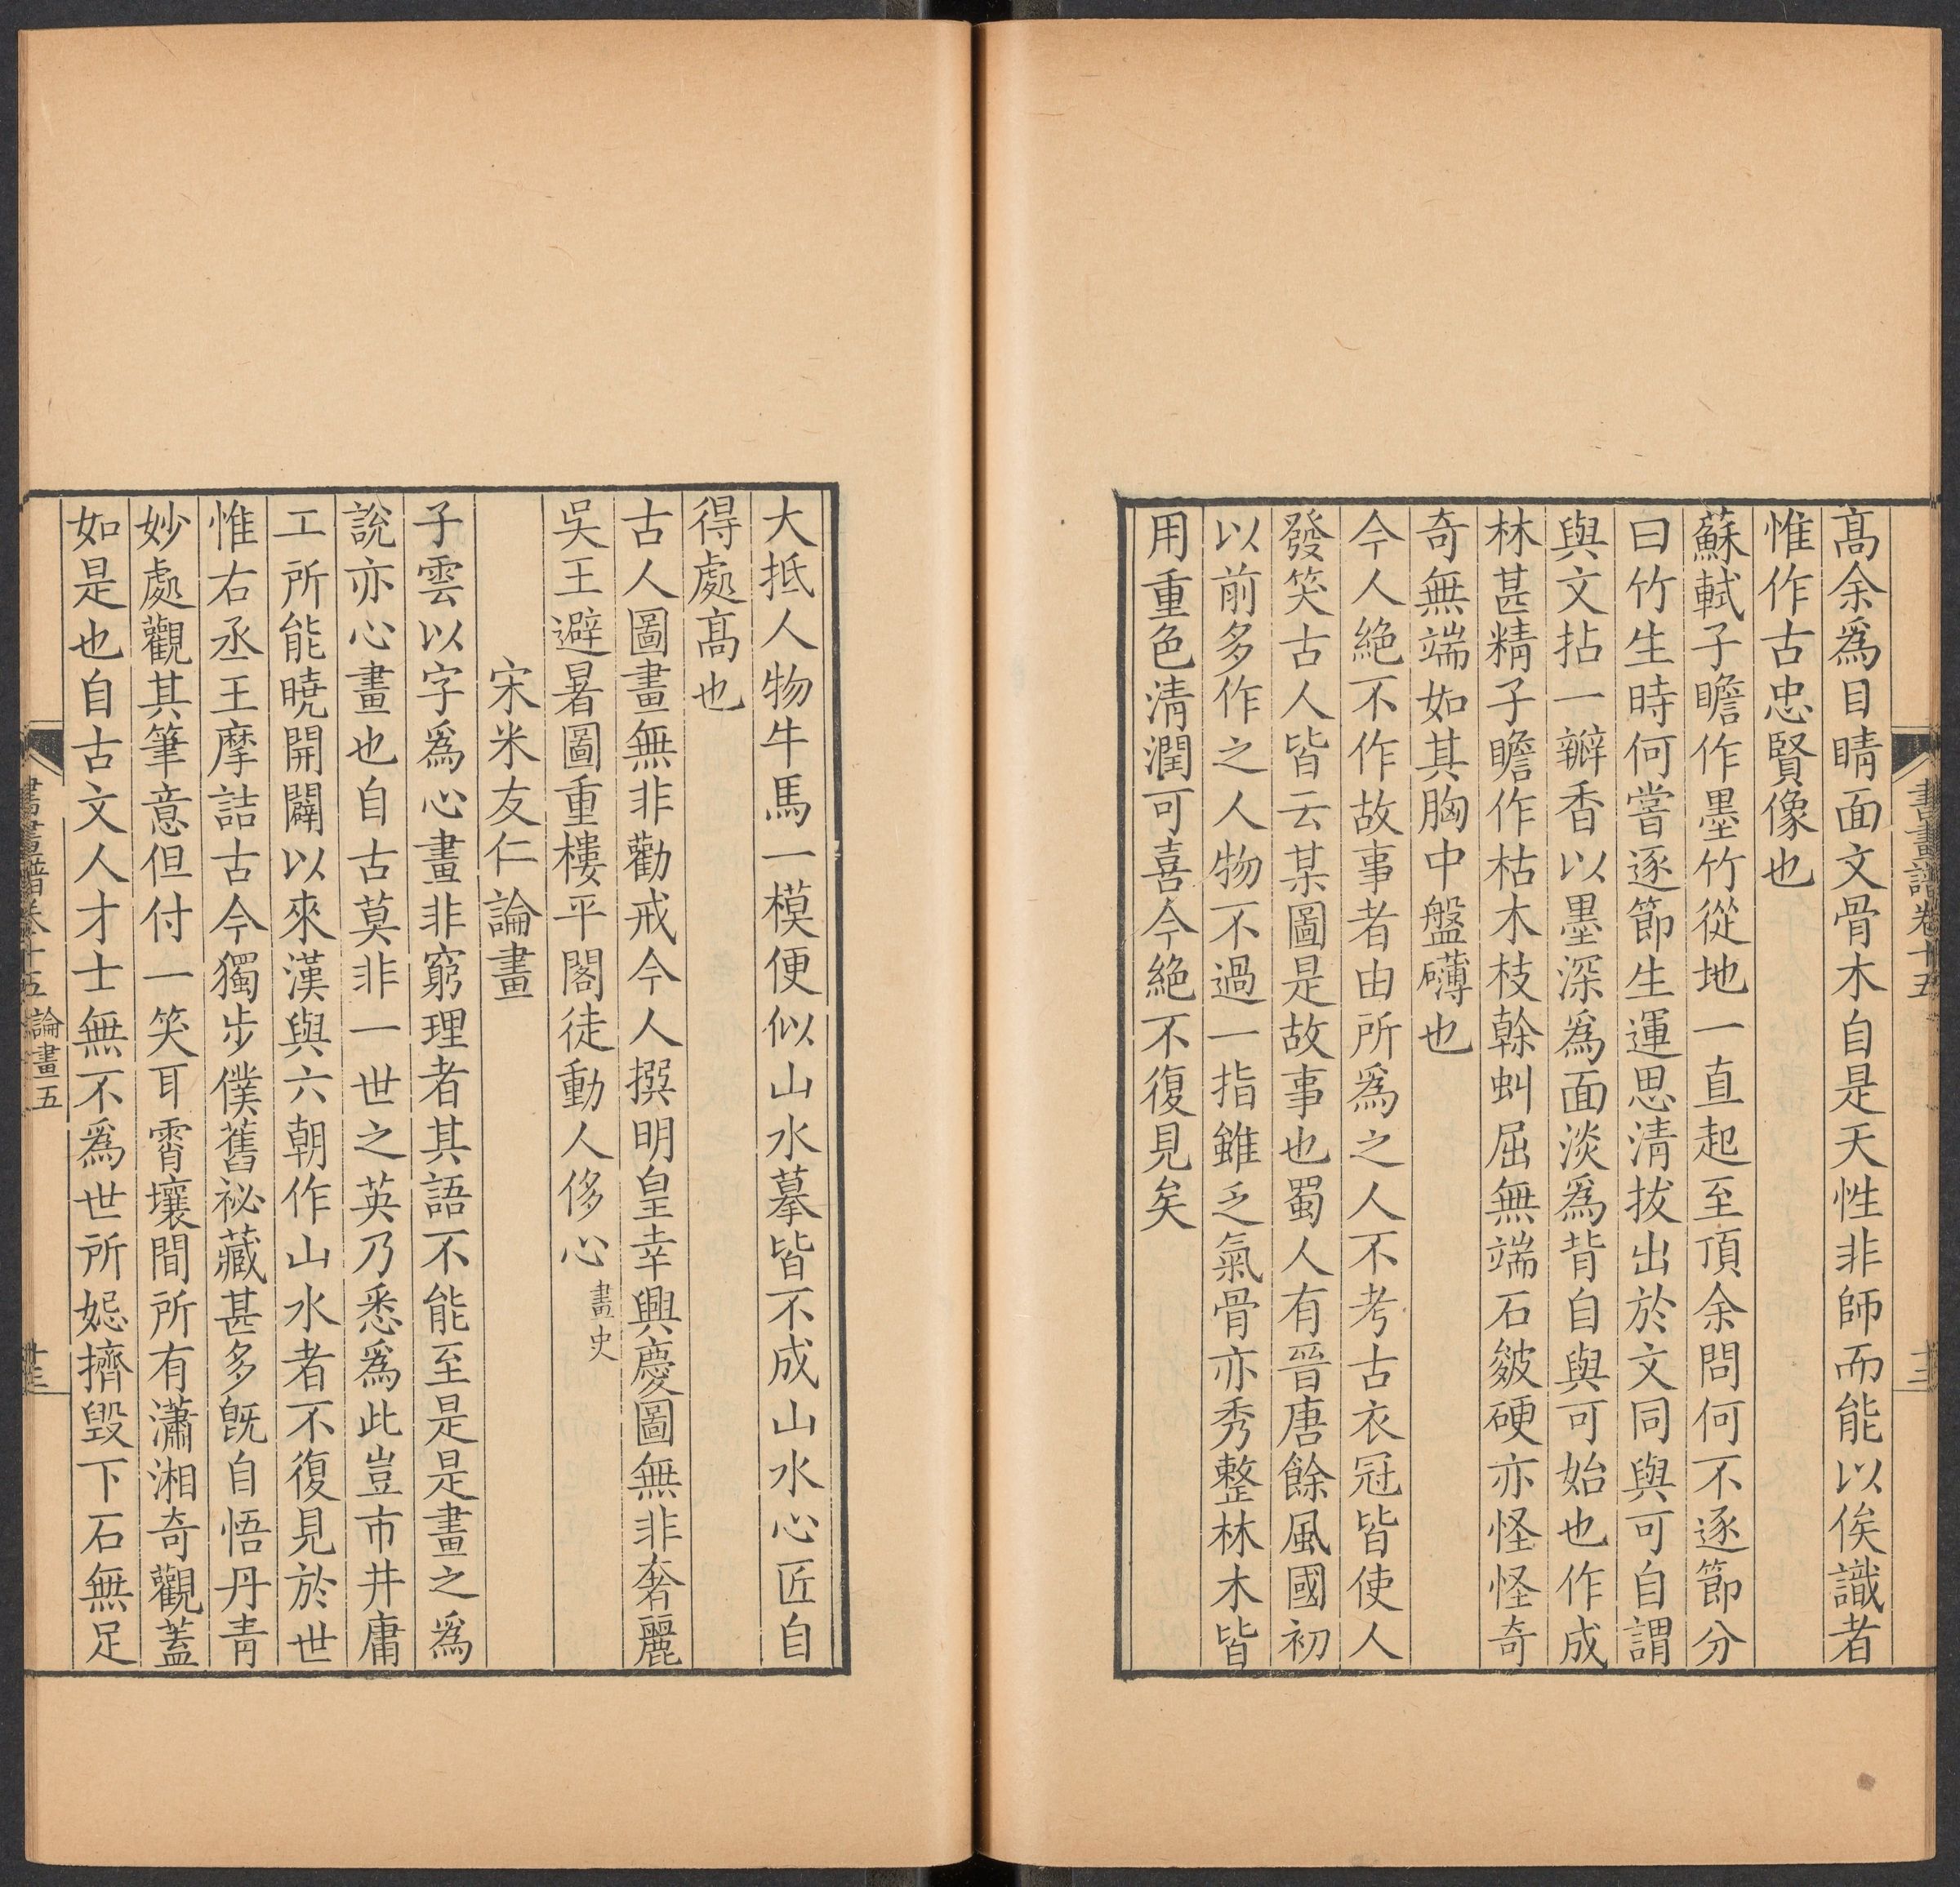 高余爲目睛面文骨木自是天性非師而能以俟識者
惟作古忠賢像也
蘇軾子瞻作墨竹從地一直起至頂余問何不逐節分
曰竹生時何嘗逐節生運思清拔出於文同與可自謂
與文拈一瓣香以墨深爲面淡爲背自與可始也作成
林甚精子瞻作枯木枝榦虯屈無端石皴硬亦怪怪奇
奇無端如其胸中盤礴也
今人絕不作故事者由所爲之人不考古衣冠皆使人
發笑古人皆云某圖是故事也蜀人有晉唐餘風國初
以前多作之人物不過一指雖乏氣骨亦秀整林木皆
用重色清潤可喜今絕不復見矣
書畫譜卷十五
大抵人物牛馬一模便似山水摹皆不成山水心匠自
得處高也
古人圖畫無非勸戒今人撰明皇幸興慶圖無非奢麗
吳王避暑圖重樓平閣徒動人侈心畫史
宋米友仁論畫
子雲以字爲心畫非窮理者其語不能至是是畫之爲
說亦心畫也自古莫非一世之英乃悉爲此豈市井庸
工所能曉開闢以來漢與六朝作山水者不復見於世
惟右丞王摩詰古今獨步僕舊祕藏甚多旣自悟丹青
妙處觀其筆意但付一笑耳霄壤間所有瀟湘奇觀蓋
如是也自古文人才士無不爲世所媢擠毀下石無足
書畫譜卷十五 論畫五